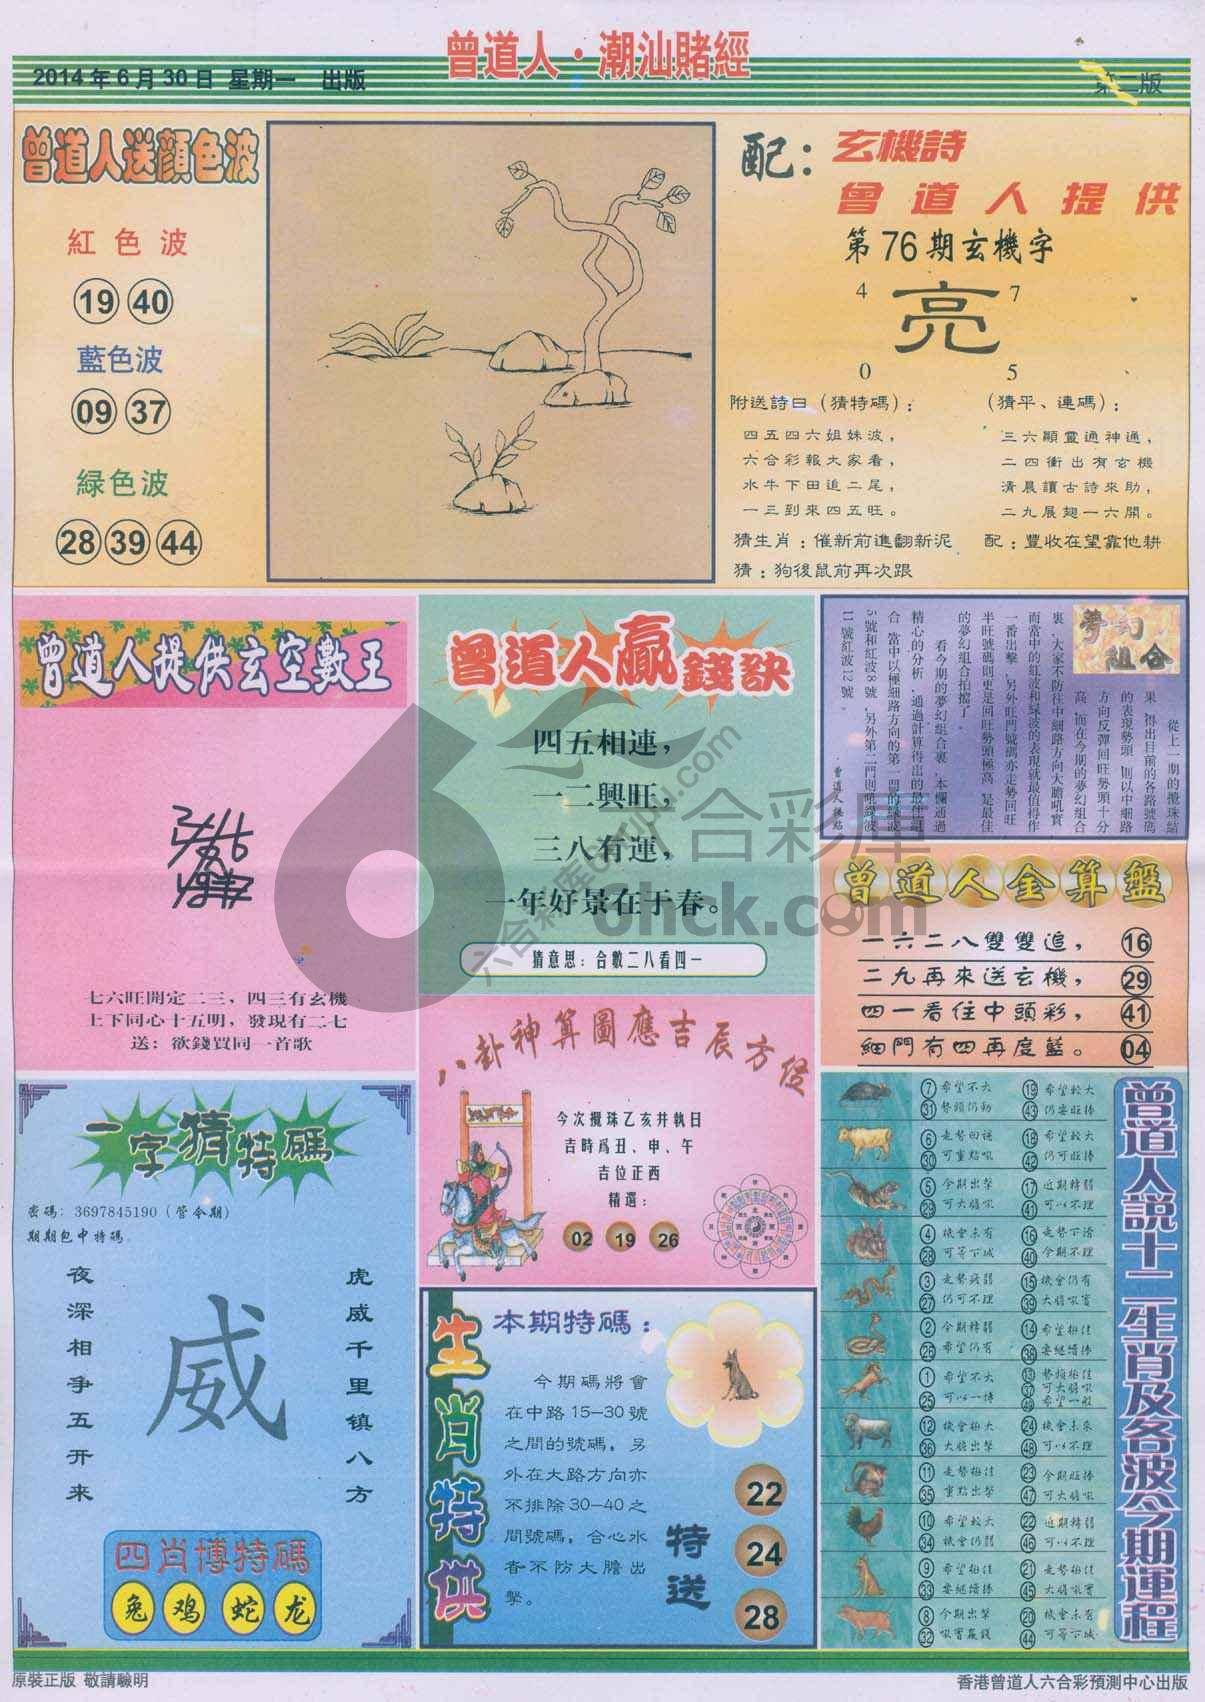 曾道人·潮汕賭經
2014年6月30日 星期一 出版
第二版
曾道人送顏色波
紅色波
19 40
藍色波
09 37
緑色波
28 39 44
配：玄機詩
曾道人提供
第76期玄機字
4 7
亮
0 5
附送詩曰（猜特碼）：
四五四六姐妹波，
六合彩報大家看，
水牛下田追二尾，
一三到來四五旺。
（猜平、連碼）：
三六顯靈通神通，
二四衝出有玄機
清晨讀古詩來助，
二九展翅一六開。
猜生肖：催新前進翻新泥
配：豐收在望靠他耕
猜：狗後鼠前再次跟
曾道人提供玄空數王
七六旺開定二三，四三有玄機
上下同心十五明，發現有二七
送：欲錢買同一首歌
曾道人贏錢訣
四五相連，
一二興旺，
三八有運，
一年好景在于春。
猜意思：合數二八看四一
夢幻組合
從上一期的攪珠結
果，得出目前的各路號碼
的表現勢頭，則以中細路
方向反彈回旺勢頭十分
高，而在今期的夢幻組合
裏，大家不防往中細路方向大膽吼實
而當中的紅波和綠波的表現就最值得作
一番出擊，另外旺門號碼亦走勢回旺
半旺號碼則更是回旺勢頭極高，是最佳
的夢幻組合拍擋了。
看今期的夢幻組合裏，本欄通過
精心的分析，通過計算得出的最佳組
合，當中以種細路方向的第一門的綠波
5號和紅波8號，另外第二門則吼綠波
11號紅波12號。
曾道人金算盤
一六二八雙雙追， 16
二九再來送玄機， 29
四一看住中頭彩， 41
細門有四再度藍。 04
八卦神算圖應吉辰方位
今次攪珠乙亥井執日
吉時爲丑、申、午
吉位正西
精選：
02 19 26
一字猜特碼
密碼：3697845190（管令期）
期期包中特碼。
夜深相爭五开来
威
虎威千里镇八方
四肖博特碼
兔 鸡 蛇 龙
生肖特供
本期特碼：
今期碼將會
在中路15—30號
之間的號碼，另
外在大路方向亦
不排除30—40之
間號碼，合心水
者不防大膽出
擊。
特送
22
24
28
曾道人説十二生肖及各波今期運程
7 希望不大 19 希望較大
31 勢頭仍勁 43 仍要旺捧
6 走勢回弱 18 希望較大
30 可重點吼 42 仍可旺捧
5 今期出擊 17 近期轉弱
29 可大膽吼 41 可以不理
4 機會未有 16 走勢下滑
28 可等下城 40 今期不理
3 走勢疲弱 15 機會仍有
27 仍可不理 39 大膽吼實
2 今期轉弱 14 希望極佳
26 希望仍有 38 要繼續捧
1 希望不大 13 勢頭極佳
25 可以一博 37 可大膽吼
49 希望一般
12 機會極大 24 機會未來
36 大膽出擊 48 可以不理
11 走勢極佳 23 今期旺捧
35 重點出擊 47 可大膽吼
10 希望較大 22 近期轉弱
34 機會仍弱 46 可以不理
9 希望極佳 21 走勢極佳
33 要繼續捧 45 大膽吼實
8 今期出擊 20 機會未有
32 吼實贏錢 44 可等下城
六合彩库
6hck.com
原裝正版 敬請驗明
香港曾道人六合彩預測中心出版